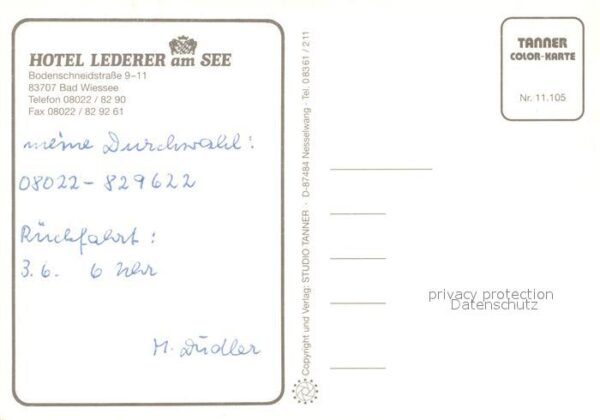 HOTEL LEDERER am SEE
Bodenschneidstraße 9-11
83707 Bad Wiessee
Telefon 08022 / 82 90
Fax 08022 / 82 92 61
meine Durchwahl:
08022-829622
Rückfahrt:
3.6. 6 Uhr
M. Düdler
© Copyright und Verlag: STUDIO TANNER · D-87484 Nesselwang · Tel. 0 83 61 / 2 11
TANNER
COLOR-KARTE
Nr. 11.105
privacy protection
Datenschutz